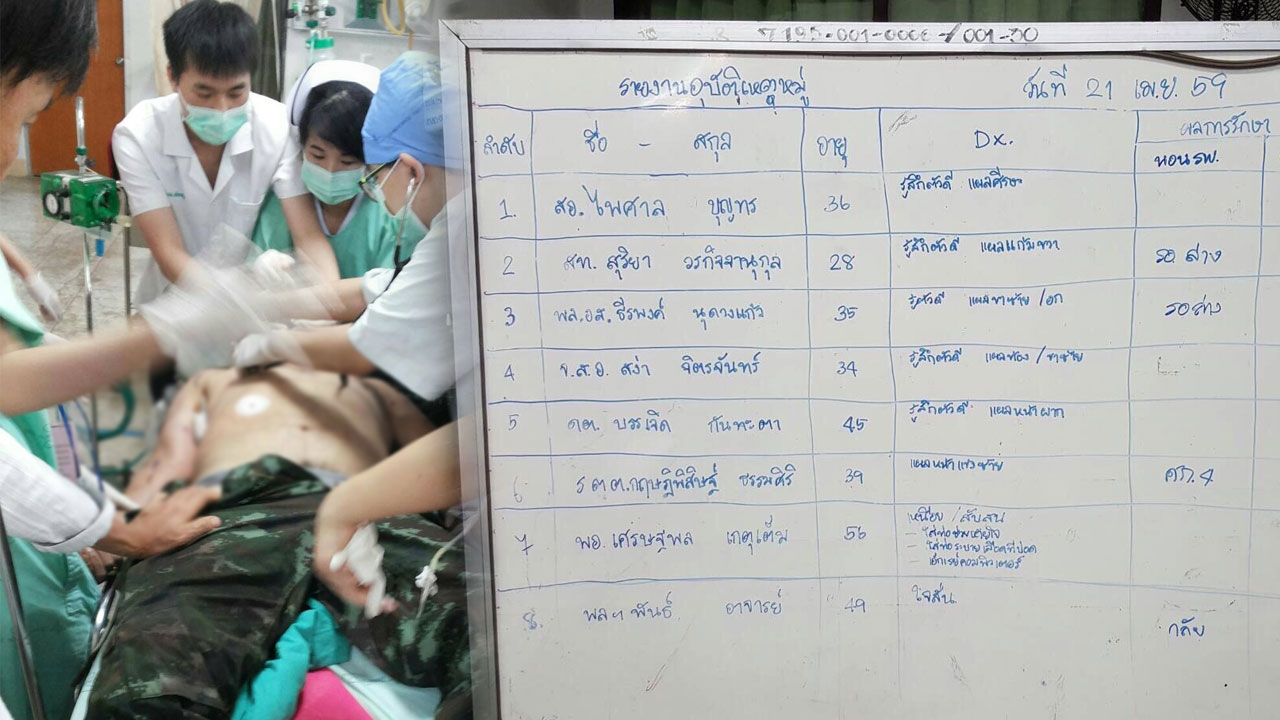 7195-001-0006-/001-30
รายงานอุบัติเหตุหมู่ วันที่ 21 เม.ย. 59
ลำดับ ชื่อ - สกุล อายุ Dx. ผลการรักษา
นอนรพ.
1. สอ. ไพศาล บุญทร 36 รู้สึกตัวดี แผลศีรษะ
2 สท. สุริยา วรกิจจานุกูล 28 รู้สึกตัวดี แผลแก้มขวา รอ ส่าง
3 พล.อส. ธีรพงศ์ นุดวงแก้ว 35 รู้ตัวดี แผลขาซ้าย /อก รอส่าง
4 จ.ส.อ. สง่า จิตรจันทร์ 34 รู้สึกตัวดี แผลท้อง / ขาซ้าย
5 ดต. บรรเจิด กันทะตา 45 รู้สึกตัวดี แผลหน้าผาก
6 ร.ต.ต. กฤษฎิพิสิษฐ์ ธรรมศิริ 39 แผลหน้าแข้งซ้าย ศก.4
7 พอ. เศรษฐพล เกตุเต็ม 56 เหนื่อย /สับสน
- ใส่ท่อช่วยหายใจ
- ใส่ท่อระบายเลือดที่ปอด
- เอ็กเรย์คอมพิวเตอร์
8. พลฯ พันธ์ อาจารย์ 49 ใจสั่น
กลับ